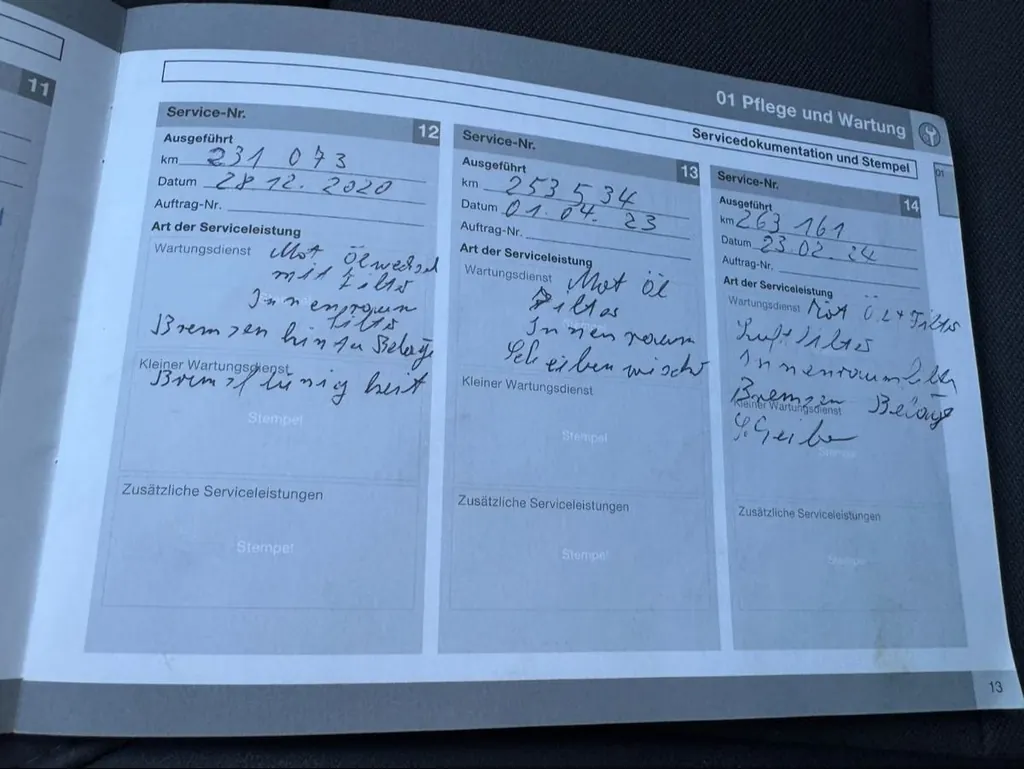 11
01 Pflege und Wartung
Servicedokumentation und Stempel
01
Service-Nr. 12
Ausgeführt
km 231 073
Datum 28 12. 2020
Auftrag-Nr.
Art der Serviceleistung
Wartungsdienst Mot Ölwechsel
mit Filter
Innenraum
Filter
Bremsen hinten Beläge
Kleiner Wartungsdienst
Bremsflüssigkeit
Stempel
Zusätzliche Serviceleistungen
Stempel
Service-Nr. 13
Ausgeführt
km 253 534
Datum 01.04. 23
Auftrag-Nr.
Art der Serviceleistung
Wartungsdienst Mot Öl
Filter
Innenraum
Scheibenwischer
Kleiner Wartungsdienst
Stempel
Zusätzliche Serviceleistungen
Stempel
Service-Nr. 14
Ausgeführt
km 263 161
Datum 23.02. 24
Auftrag-Nr.
Art der Serviceleistung
Wartungsdienst Mot Öl + Filter
Luftfilter
Innenraumfilter
Bremsen Beläge
Kleiner Wartungsdienst
Stempel
Zusätzliche Serviceleistungen
Stempel
13